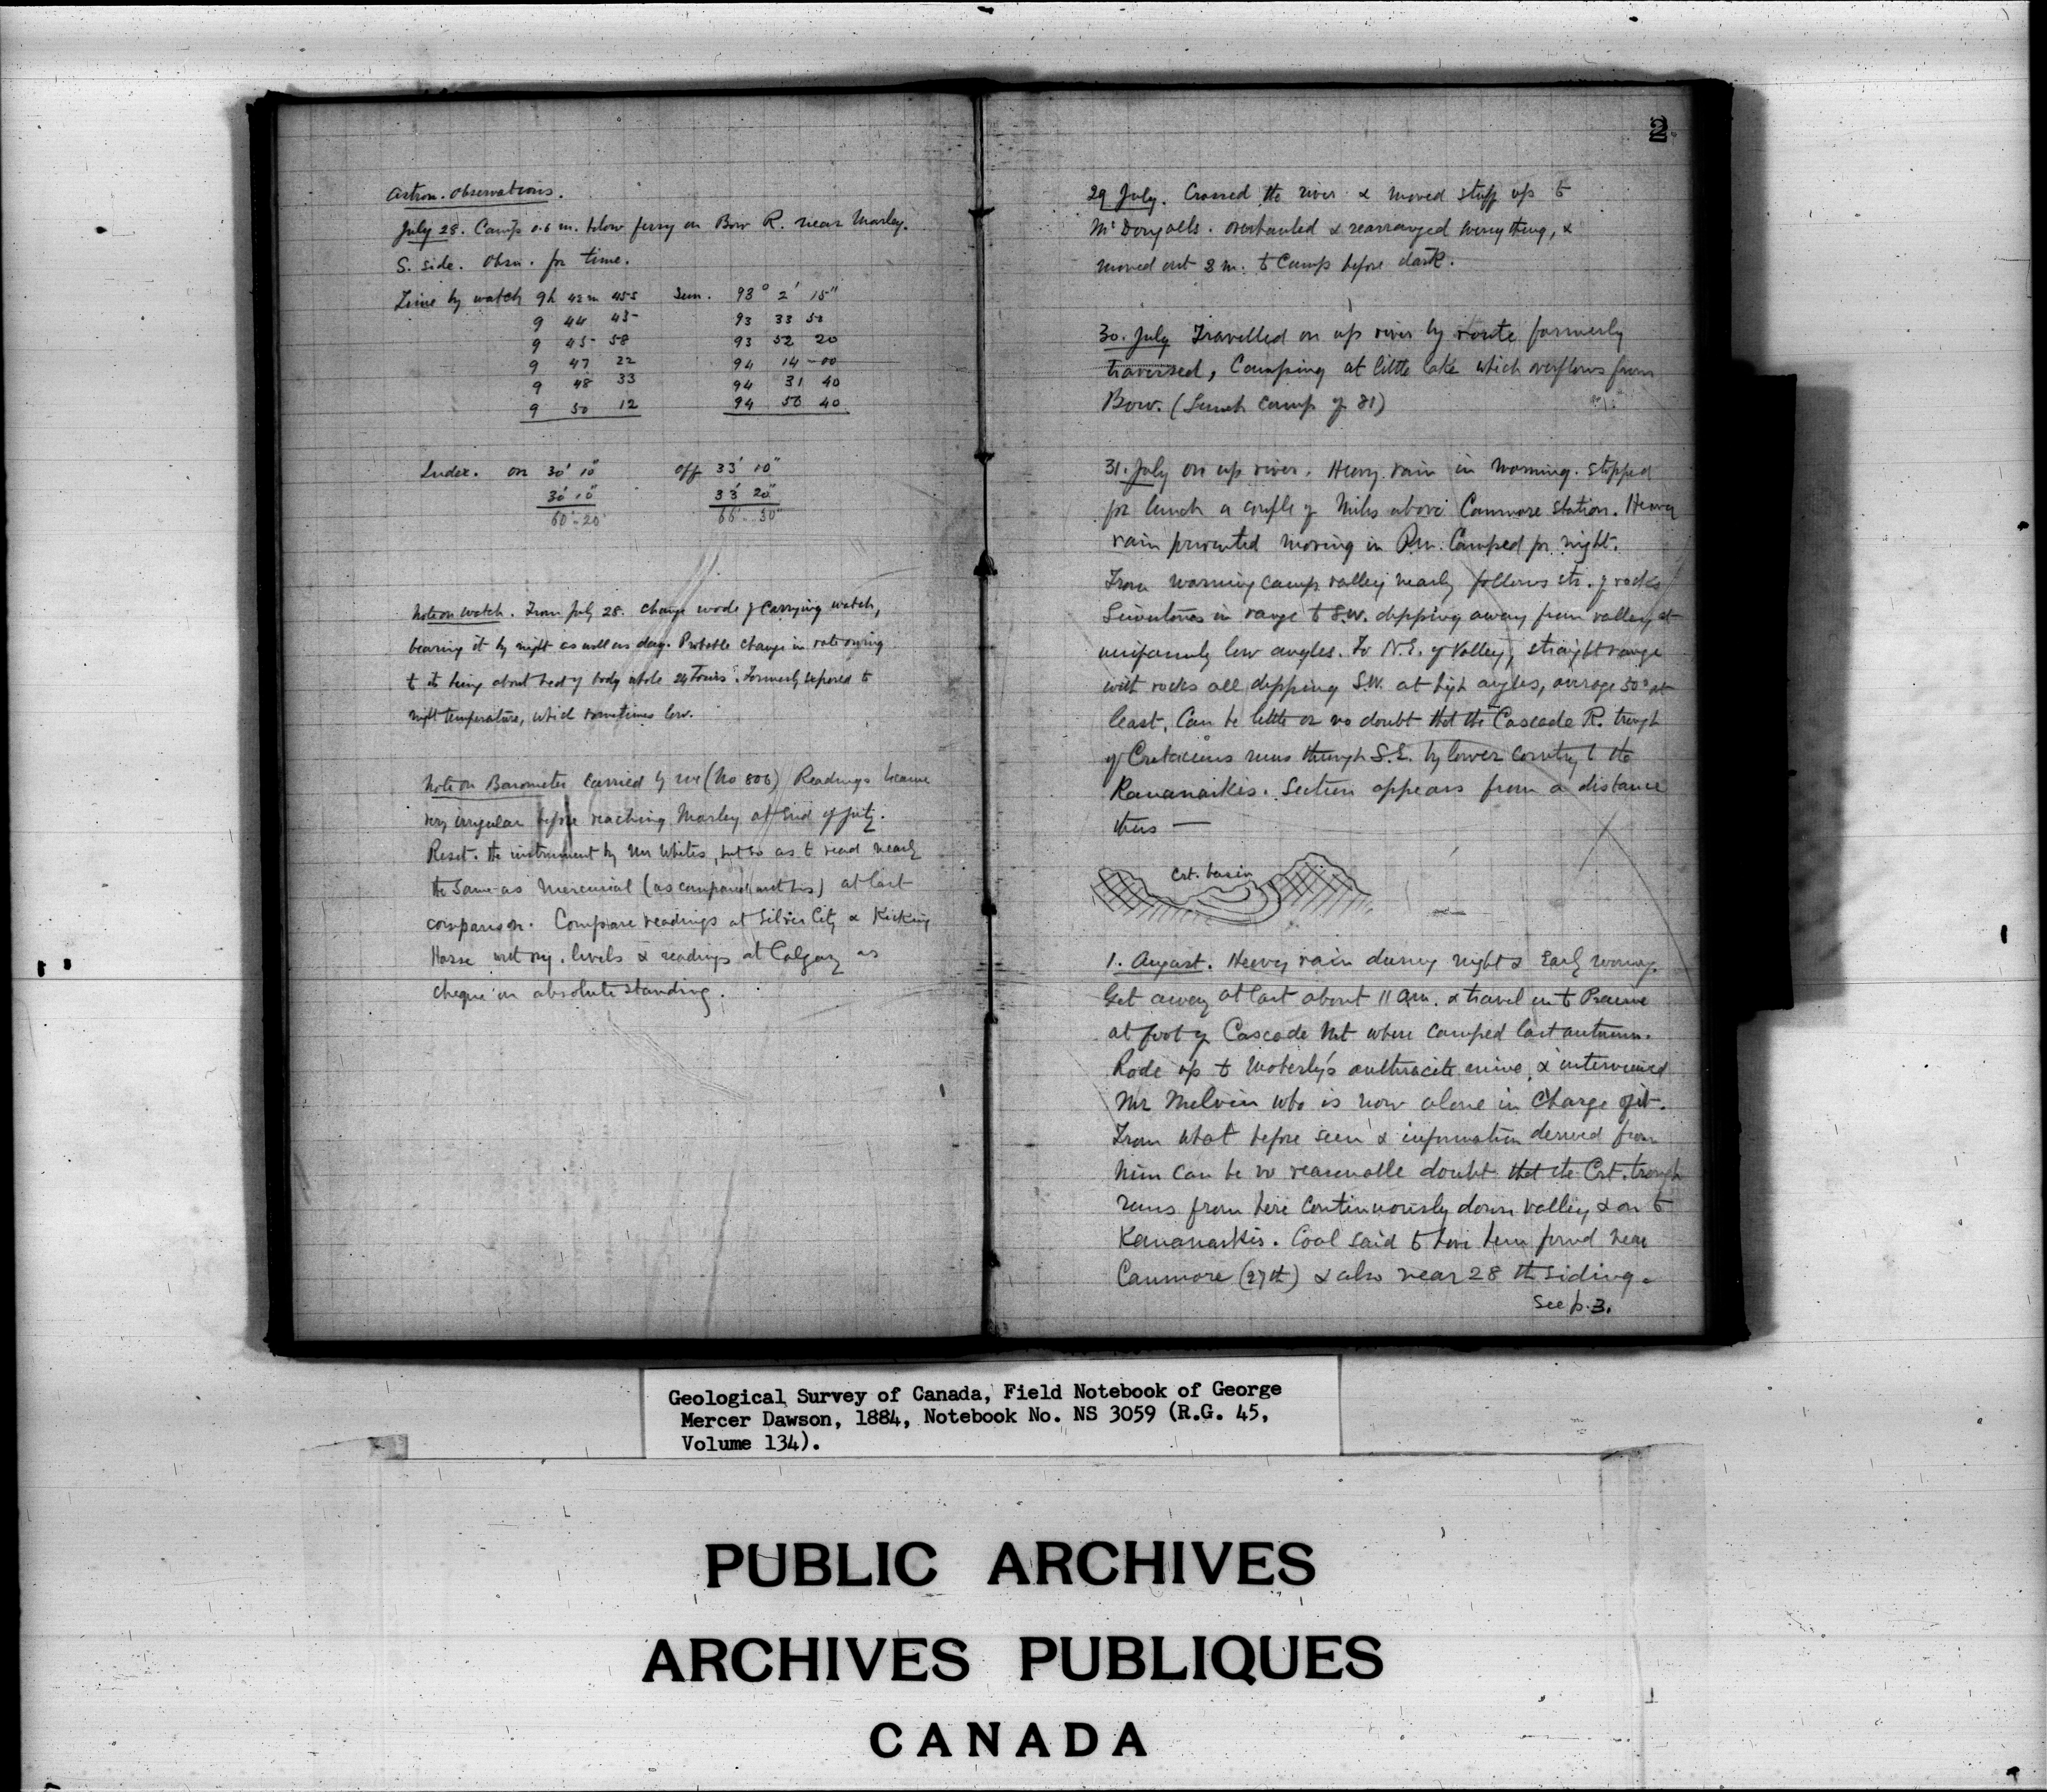 Astron. Observations.
July 28. Camp 0.6 m. below ferry on Bow R. near Morley.
S. side. Obsn. for time.
Time by watch 9h 43m 45s Sun. 93° 2' 15"
9 44 45 93 33 50
9 45 58 93 52 20
9 47 22 94 14 00
9 48 33 94 31 40
9 50 12 94 56 40
Index. on 30' 10" off 33' 10"
30' 10" 33' 20"
60' 20" 66' 30"
Note on watch. From July 28. Change mode of carrying watch,
bearing it by night as well as day. Probable change in rate owing
to its being about heat of body whole 24 hours. Formerly exposed to
night temperature, which sometimes low.
Note on Barometer carried by me (No 806) Readings became
very irregular before reaching Morley at end of July.
Reset the instrument by Mr Whites, but so as to read nearly
the same as mercurial (as compared with his) at last
comparison. Compare readings at Silver City & Kicking
Horse with ry. levels & readings at Calgary as
cheque on absolute standing.
2
29 July. Crossed the river & moved stuff up to
McDougalls. overhauled & rearranged everything, &
moved out 3 m. to Camp before dark.
30. July Travelled on up river by route formerly
traversed, Camping at little lake which overflows from
Bow. (Lunch camp of 81)
31. July on up river. Heavy rain in morning. Stopped
for lunch a couple of miles above Canmore station. Heavy
rain prevented moving in P.m. Camped for night.
From morning camp valley nearly follows str. of rocks
Limestones in range to S.W. dipping away from valley at
uniformly low angles. To N.E. of Valley, straight range
with rocks all dipping S.W. at high angles, average 50° at
least. Can be little or no doubt that the Cascade R. trough
of Cretaceous runs through S.E. by lower country to the
Kananaskis. Section appears from a distance
thus —
Crt. basin
1. August. Heavy rain during night & early morning.
Get away at last about 11 a.m. & travel on to Prairie
at foot of Cascade Mt where camped last autumn.
Rode up to Moberly's anthracite mine, & interviewed
Mr Melvin who is now alone in charge of it.
From what before seen & information derived from
him can be no reasonable doubt that the Crt. trough
runs from here continuously down valley & on to
Kananaskis. Coal said to have been found near
Canmore (27th) & also near 28 th siding.
See p. 3.
Geological Survey of Canada, Field Notebook of George
Mercer Dawson, 1884, Notebook No. NS 3059 (R.G. 45,
Volume 134).
PUBLIC ARCHIVES
ARCHIVES PUBLIQUES
CANADA